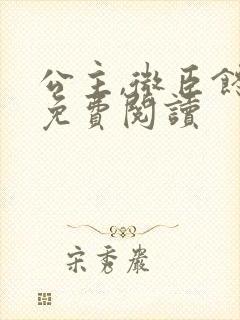 公主,微臣
免費閱讀
宋秀嚴